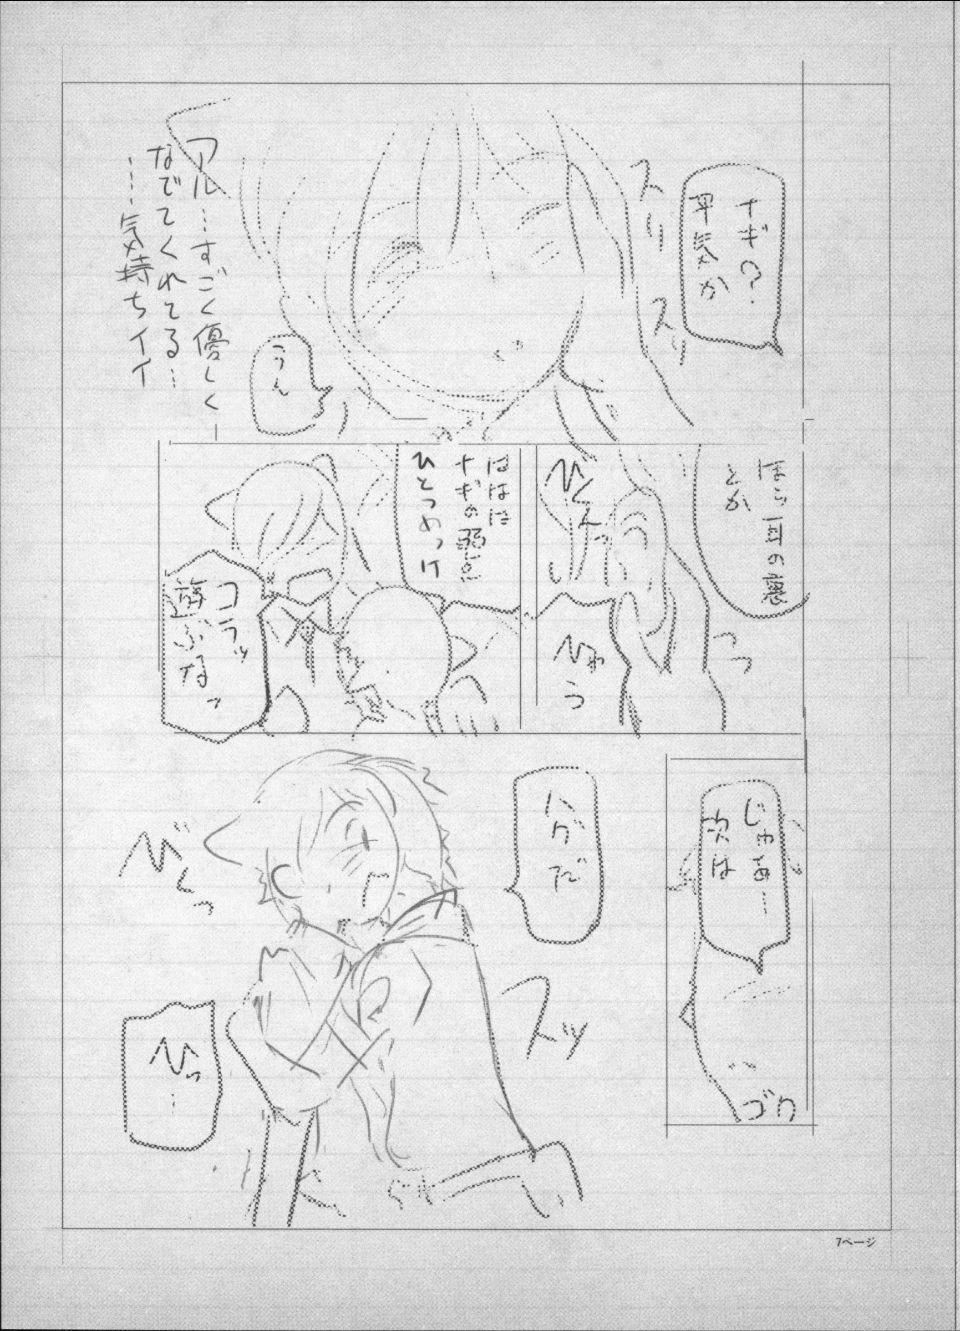 ナギ?
平気か
スリ
スリ
うん
アル…すごく優しく
なでてくれてる…
……気持ちイイ
ほら耳の裏
とか
ひゃう
ははは
ナギの弱点
ひとつめっけ
コラッ
遊ぶなッ
じゃあ…
次は
ゴク
ハグだ
スッ
びくっ
ひっ…
7ページ